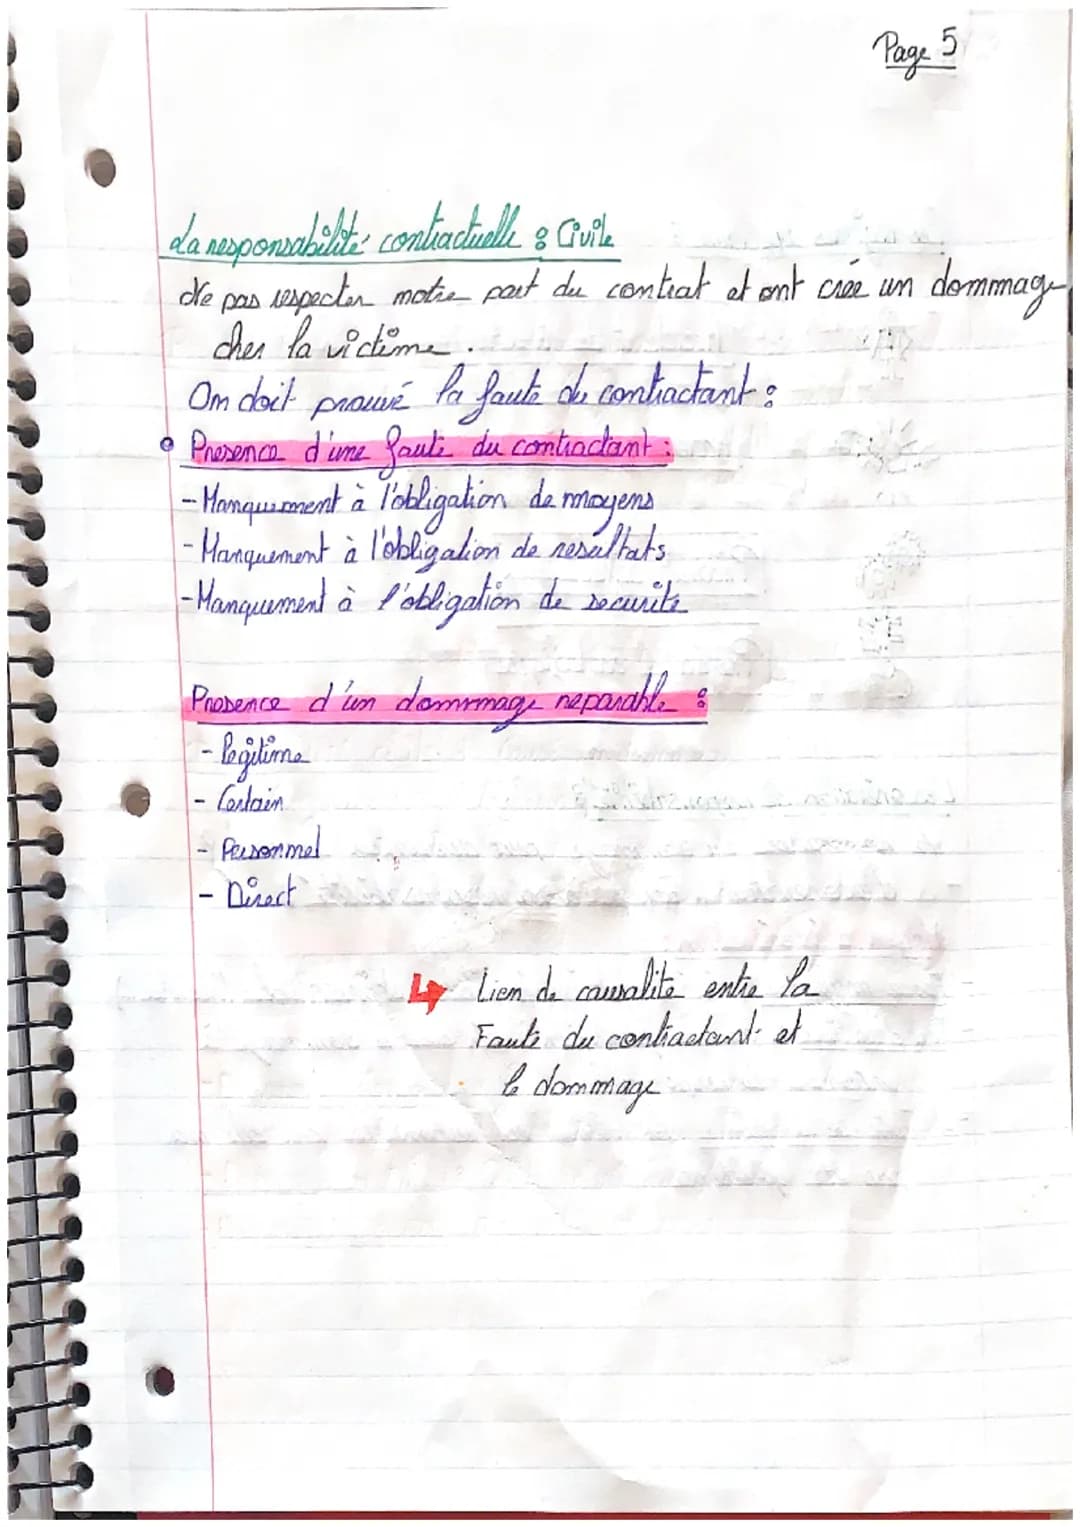 Page 5
La responsabilité contractuelle : Civile
Ne pas respecter notre part du contrat et ont crée un dommage
chez la victime.
On doit prouvé la faute du contractant :
Presence d'une faute du contractant :
- Manquement à l'obligation de moyens
- Manquement à l'obligation de resultats
- Manquement à l'obligation de securite
Presence d'un dommage reparable :
- legitime
- Certain
- Personnel
- Direct
↳ Lien de causalite entre la
Faute du contractant et
le dommage